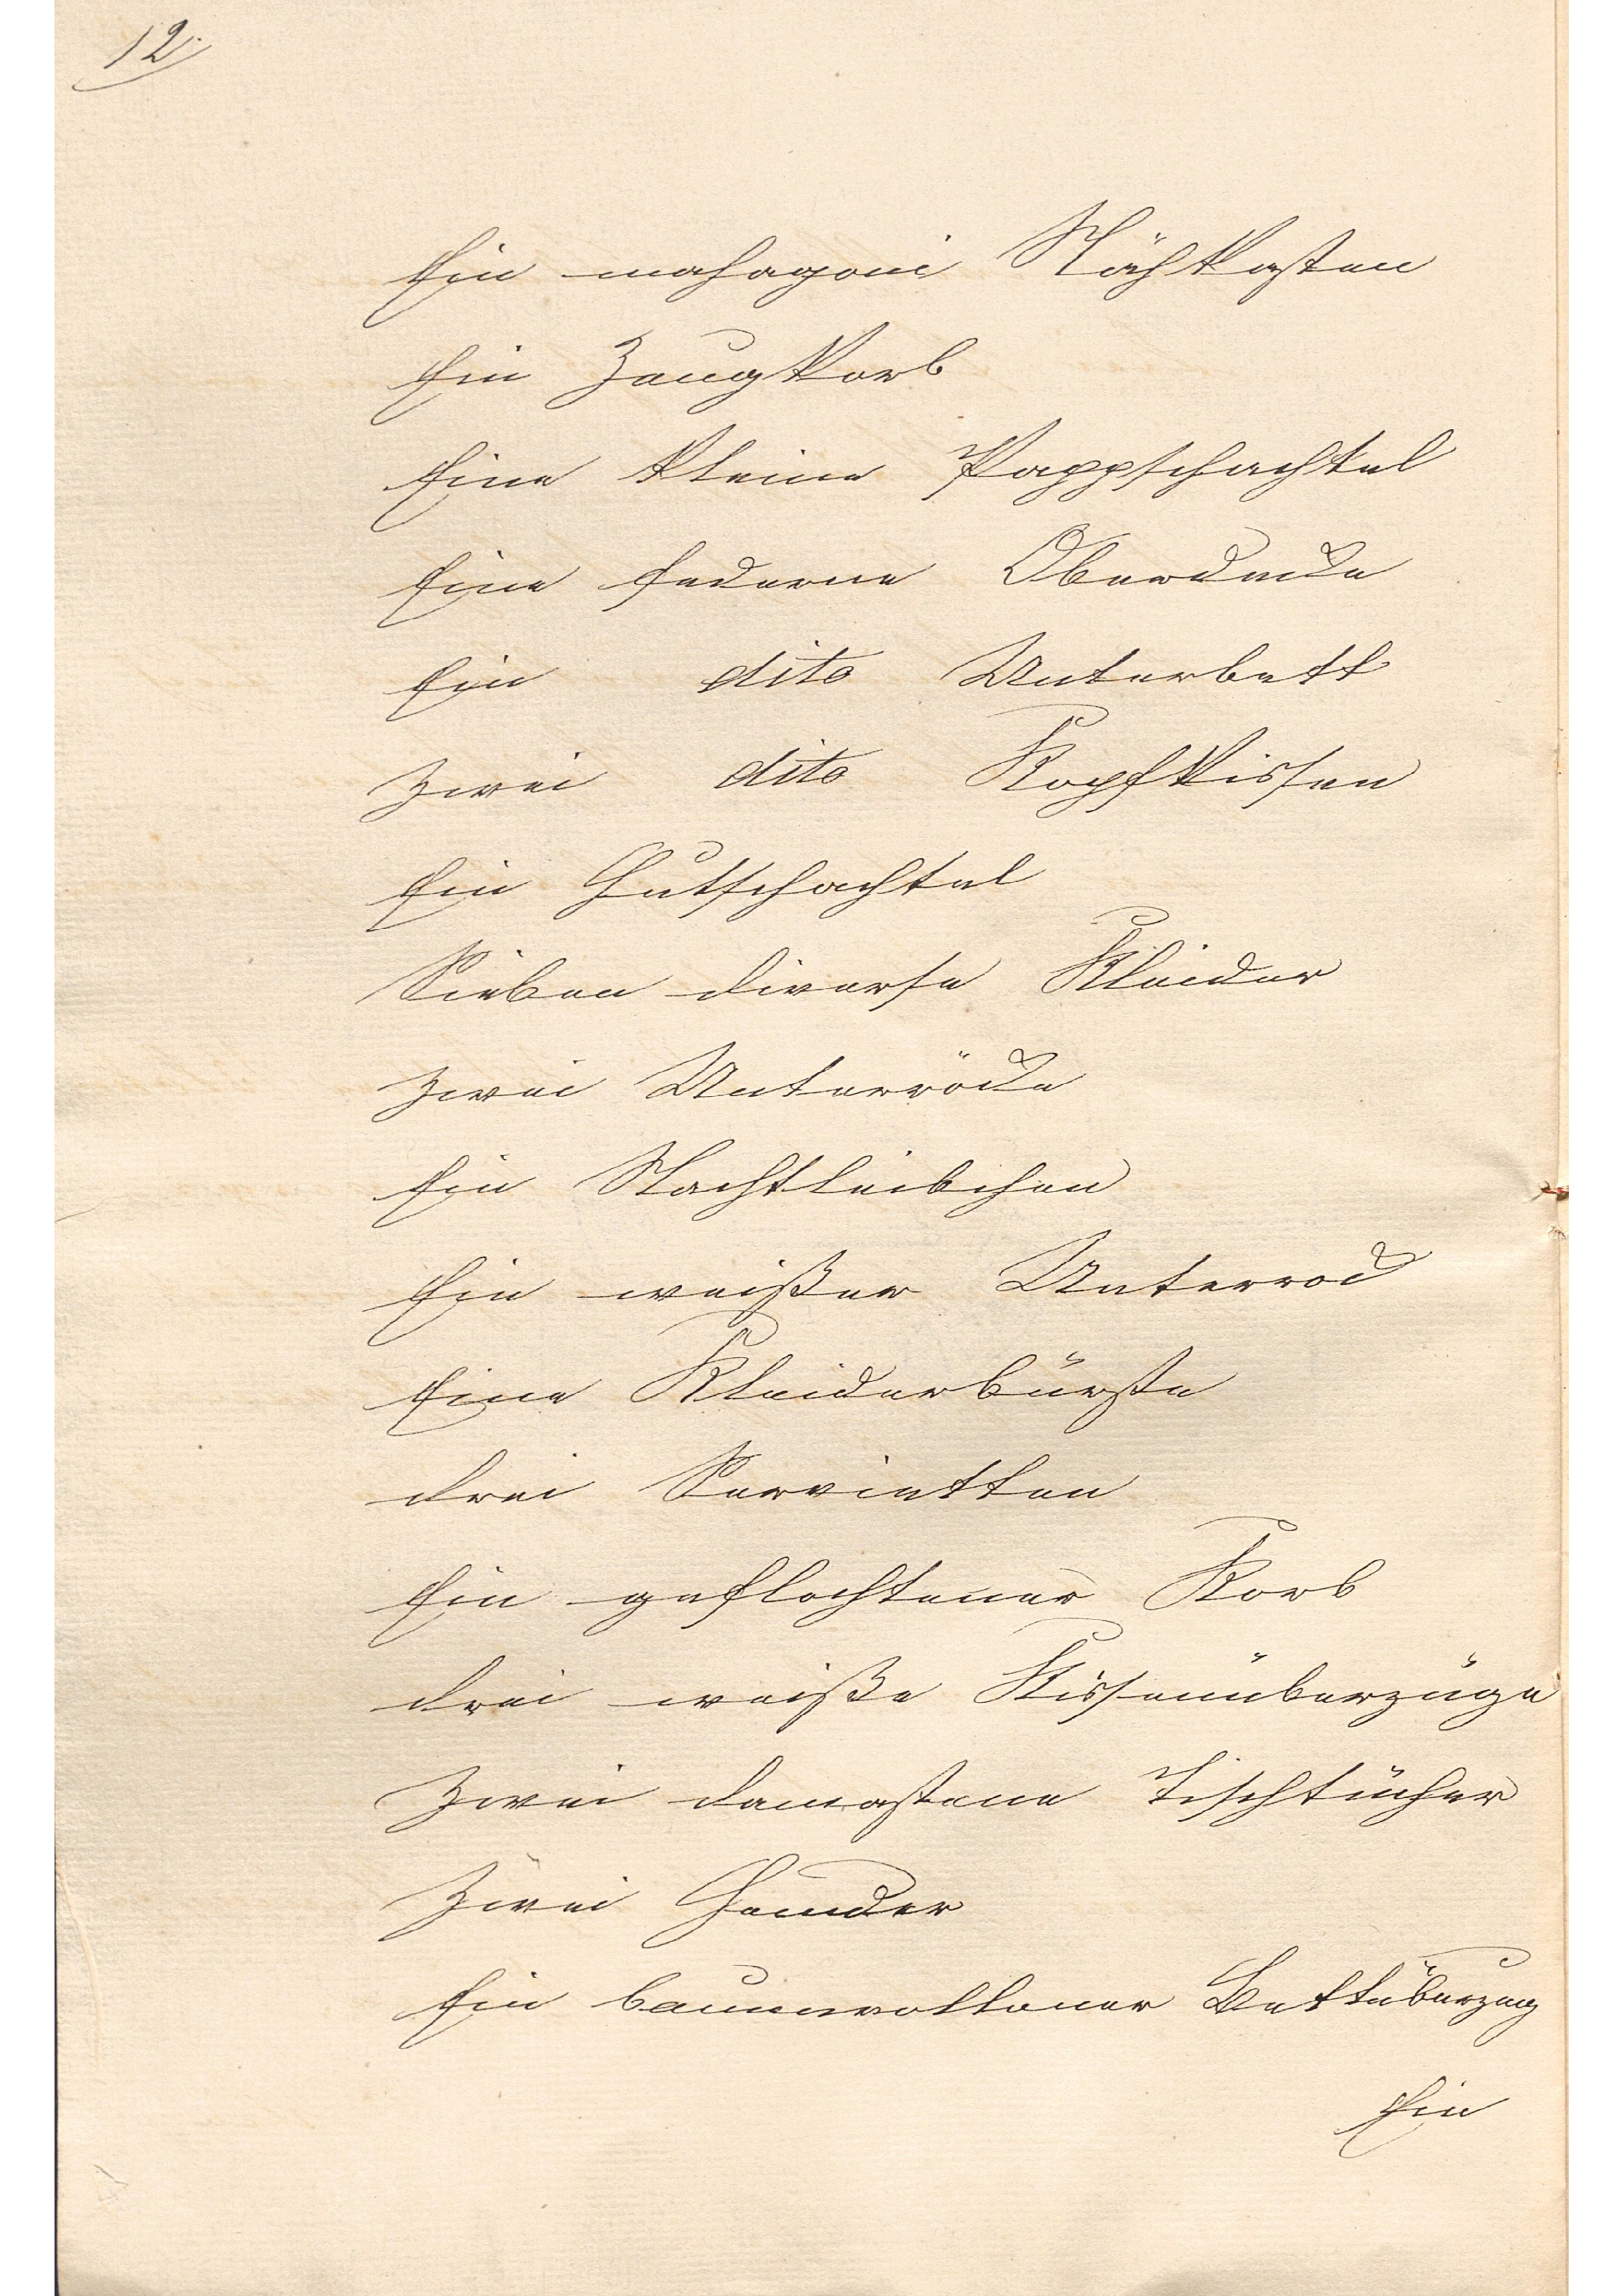 12.
Ein mahagoni Nähkasten
Ein Zeugkorb
Eine kleine Pappschachtel
Eine federne Oberdecke
Ein dito Unterbett
Zwei dito Kopfkissen
Ein Hutschachtel
Sieben diverse Kleider
Zwei Unterröcke
Ein Nachtleibchen
Ein weißer Unterrock
Eine Kleiderbürste
drei Servietten
Ein geflochtener Korb
drei weiße Kissenüberzüge
Zwei damastene Tischtücher
Zwei Hemder
Ein baumwollener Bettüberzug
Ein